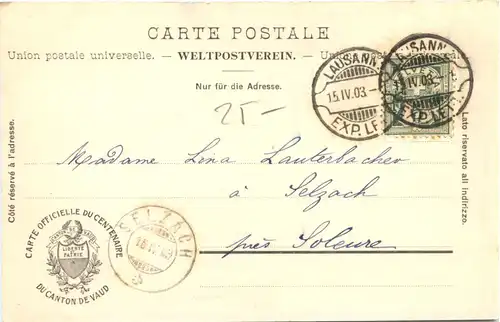 CARTE POSTALE
Union postale universelle. — WELTPOSTVEREIN. — Un
Nur für die Adresse.
25 —
LAUSANN
15.IV.03. —
EXP. LETT.
LAUSANN
IV. 03
EXP. LETT.
Côté réservé à l'adresse.
Lato riservato all indirizzo.
Madame Lina Lauterbacher
à Selzach
près Soleure
SELZACH
15.IV.03
CARTE OFFICIELLE DU CENTENAIRE
LIBERTÉ
ET
PATRIE
DU CANTON DE VAUD